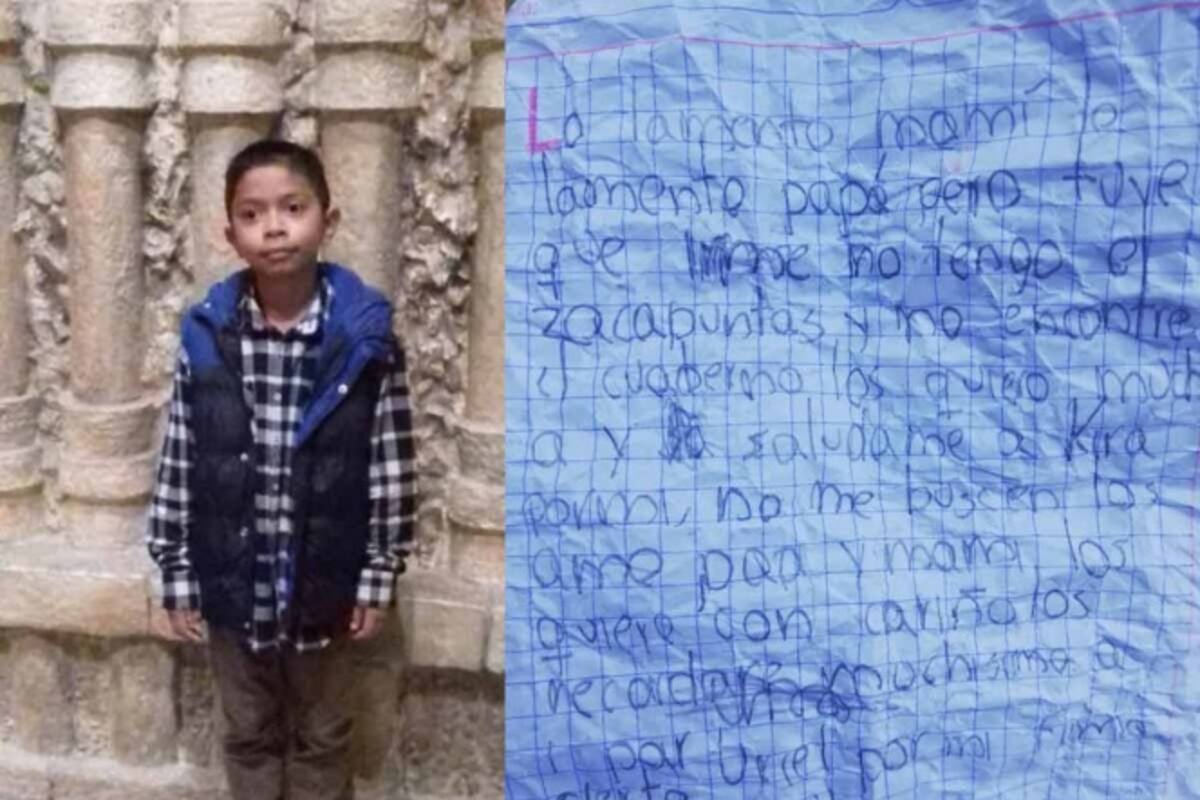 Lo lamento mamí le
lamento papá pero tuve
que irme no tengo el
zacapuntas y no encontre
el cuaderno los quiero much
a y saludame a Kira
pormi, no me buscen los
ame paa y mama los
quiere con cariño los
recadare muchisimo a
par Uriel pormi Firma